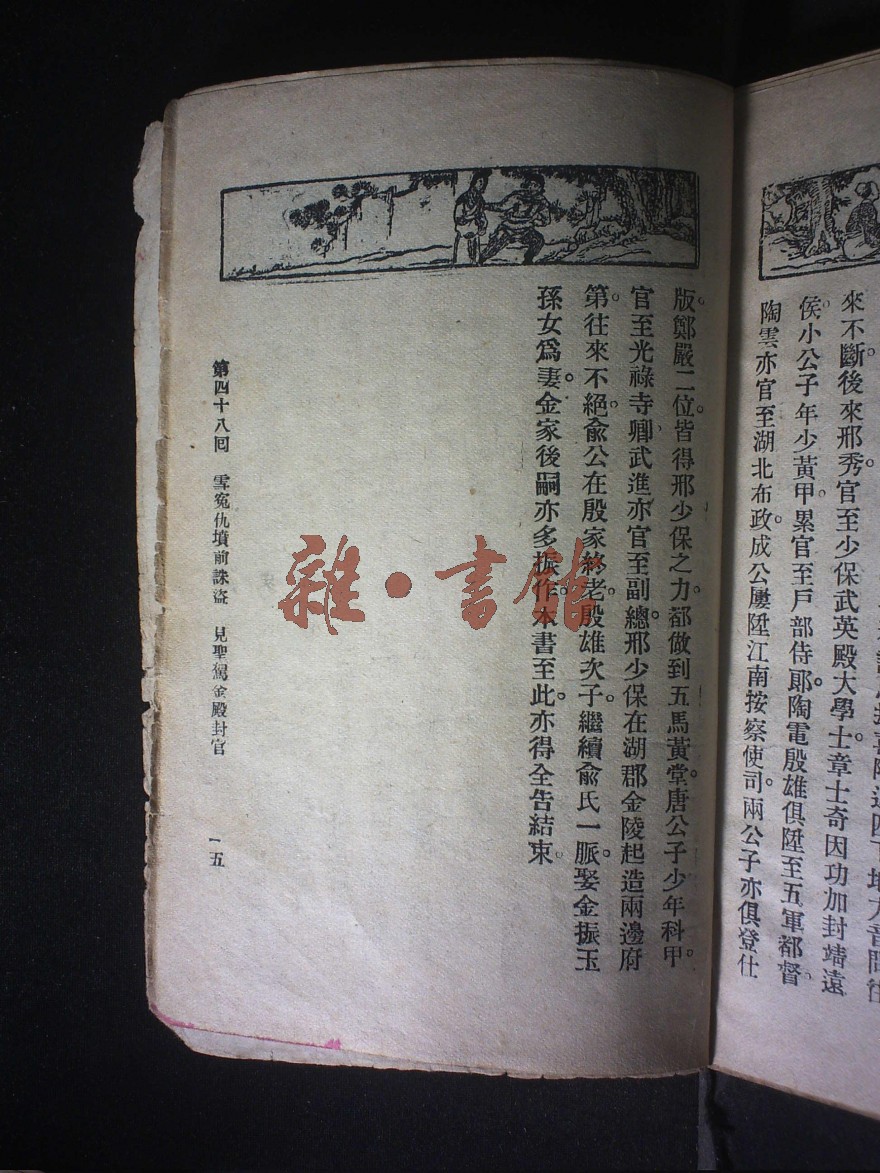 來不斷後來邢秀官至少保武英殿大學士章士奇因功加封靖遠
侯。小公子年少黃甲。累官至戶部侍郞。陶電殷雄俱陞至五軍都督。
陶雲亦官至湖北布政。成公屢陞江南按察使司。兩公子亦俱登仕
版。鄭嚴二位。皆得邢少保之力。都做到五馬黃堂。唐公子少年科甲。
官至光祿寺卿。武進亦官至副總。邢少保在湖郡金陵起造兩邊府
第。往來不絕。俞公在殷家終老。殷雄次子。繼續俞氏一脈。娶金振玉
孫女爲妻。金家後嗣亦多振作。本書至此。亦得全告結束。
第四十八囘 雪寃仇墳前誅盜 見聖駕金殿封官
一五
雜·書館